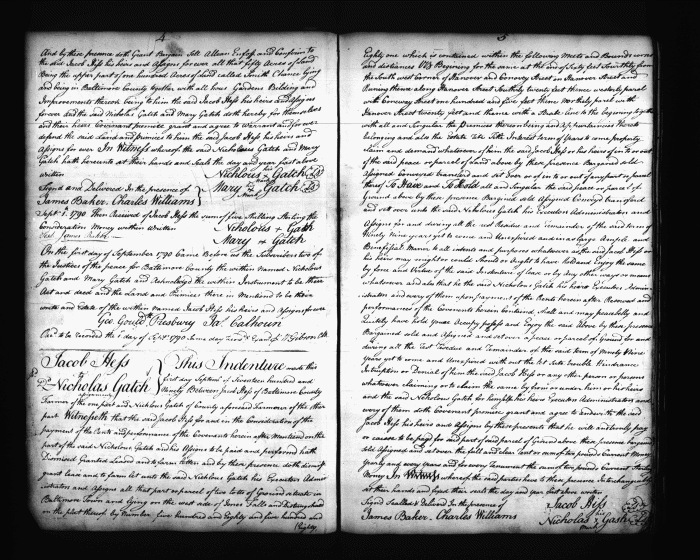 4
And by these presence doth Grant Bargain Sell Alien Enfeoff and Confirm to
the said Jacob Hess his heirs and Assigns for ever all that fifty Acres of Land
Being the upper part of one hundred Acres of Land called Smith Chance Lying
and being in Baltimore County together with all hous Gardens Bilding and
Improvements thereto belong to him the said Jacob Hess his heirs and Assigns
forever and the said Nicholas Gatch and Mary Gatch doth hereby for themselves
and their heirs Covenant promise grant and agree to Warrant and for ever
defend the said Land and Premises to him the said Jacob Hess his heirs and
Assigns for ever In Witness whereof the said Nicholas Gatch and Mary
Gatch hath hereunto set their hands and Seals the day and year first above
written
Nicholas Gatch
Signed and Delivered In the presence of
Mary Gatch
James Baker. Charles Williams
Sept 1st 1790 Then Received of Jacob Hess the sum of five Shilling Sterling the
Consideration Money within Written
Nicholas + Gatch
Test James Baker
Mary + Gatch
On the first day of September 1790 Came Before us the Subscribers two of
the Justices of the peace for Baltimore County the within Named Nicholas
Gatch and Mary Gatch and Acknowledged the within Instrument to be their
Act and deed and the Land and Premises there in Mentioned to be the
write and Estate of the within named Jacob Hess his heirs and Assigns forever
Geo Gouldh Presbury Ja. Calhoun
Recd to be recorded the 1 day of Sept 1790 Same day Recorded & Exd
Jacob Hess
to
Nicholas Gatch
This Indenture made this
first day Septemr in Seventeen hundred and
Ninety Between Jacob Hess of Baltimore County
Farmer of the one part and Nicholas Gatch of County aforesaid Farmer of the other
part Witnesseth that the said Jacob Hess for and in the Consideration of the
payment of the Rents and performance of the Covenants herein after Mentioned on the
part of the said Nicholas Gatch and his Assigns to be paid and performed hath
Demised Granted Leased and to farm letten and by these presence doth demise
grant lease and to farm let unto the said Nicholas Gatch his Executors Admin
istrators and Assigns all that part or parcel of two lotts of Ground situate in
Baltimore Town and lying on the west side of Jones Falls and Distinguished
on the plat thereof by Number five hundred and Eighty and five hundred and
(Eighty
5
Eighty one which is contained within the following Meets and Bounds corses
and distances Viz Begining for the same at the end of sixty feet Southerly from
the South west Corner of Hanover and Conway Street in Hanover Street and
Runing thence along Hanover Street Southerly twenty feet thence westerly paralel
with Conway Street one hundred and five feet thence Northerly paralel with
Hanover Street twenty feet and thence with a Strate line to the beginning together
with all and Singular the Premises thereon being and its appurtinances thereto
belonging and also the Estate title Interest term of years to come property
claim and demand whatsoever of him the said Jacob Hess or his heirs of in to or out
of the said peace or parcel of Land above by these presence Bargained sold
Assigned Conveyed transferd and set over or of in to or out of any part or parcel
thereof To Have and To Hold all and Singular the said peace or parcel of
Ground above by these presence Bargained sold Assigned Conveyed transferd
and sett over unto the said Nicholas Gatch his Executors Administrators and
Assigns for and during all the rest Residue and remainder of the said term of
Ninety Nine years yet to come and Unexpired and in as Large Ample and
Beneficial Maner to all intents and purposes whatsoever as the said Jacob Hess or
his heirs may might or could Should or Ought to have holdened Enjoyed the same
by force and Virtue of the said Indenture of lease or by any other ways or means
whatsoever and also that he the said Nicholas Gatch his heirs Executors Admin
istrators and every of them upon payment of the Rents herein after Reserved and
performances of the Covenants herein contained Shall and may peaceably and
Quietly have hold Use Occupy possess and Enjoy the said Above by these presence
Bargained sold and Assigned and set over a peace or parcel of Ground for and
during all the rest Residue and Remainder of the said term of Ninety Nine
Years yet to come and Unexpired with out the let Sute trouble Hindrance
Intruption or Denial of him the said Jacob Hess or any other person or persons
whatsoever claiming or to claim the same by from or under him or his heirs
and the said Nicholas Gatch for himself his heirs Executors Administrators and
every of them doth Covenant promise grant and agree to and with the said
Jacob Hess his heirs and Assigns by these presents that he will and truely pay
or cause to be paid for said part of said parcel of Ground above these presence bargained
sold Assigned and set over the full and clear rent or sum of two pound Current Money
Yearly and every years and for every Years rent the sum of two pound Current Sterling
Money In Witness whereof the said parties have to these presence Interchangeably
set their hands and fixed their seals the day and year first above written
Signed Sealled & Deliverd In the presence of
Jacob Hess
James Baker. Charles Williams
Nicholas + Gatch